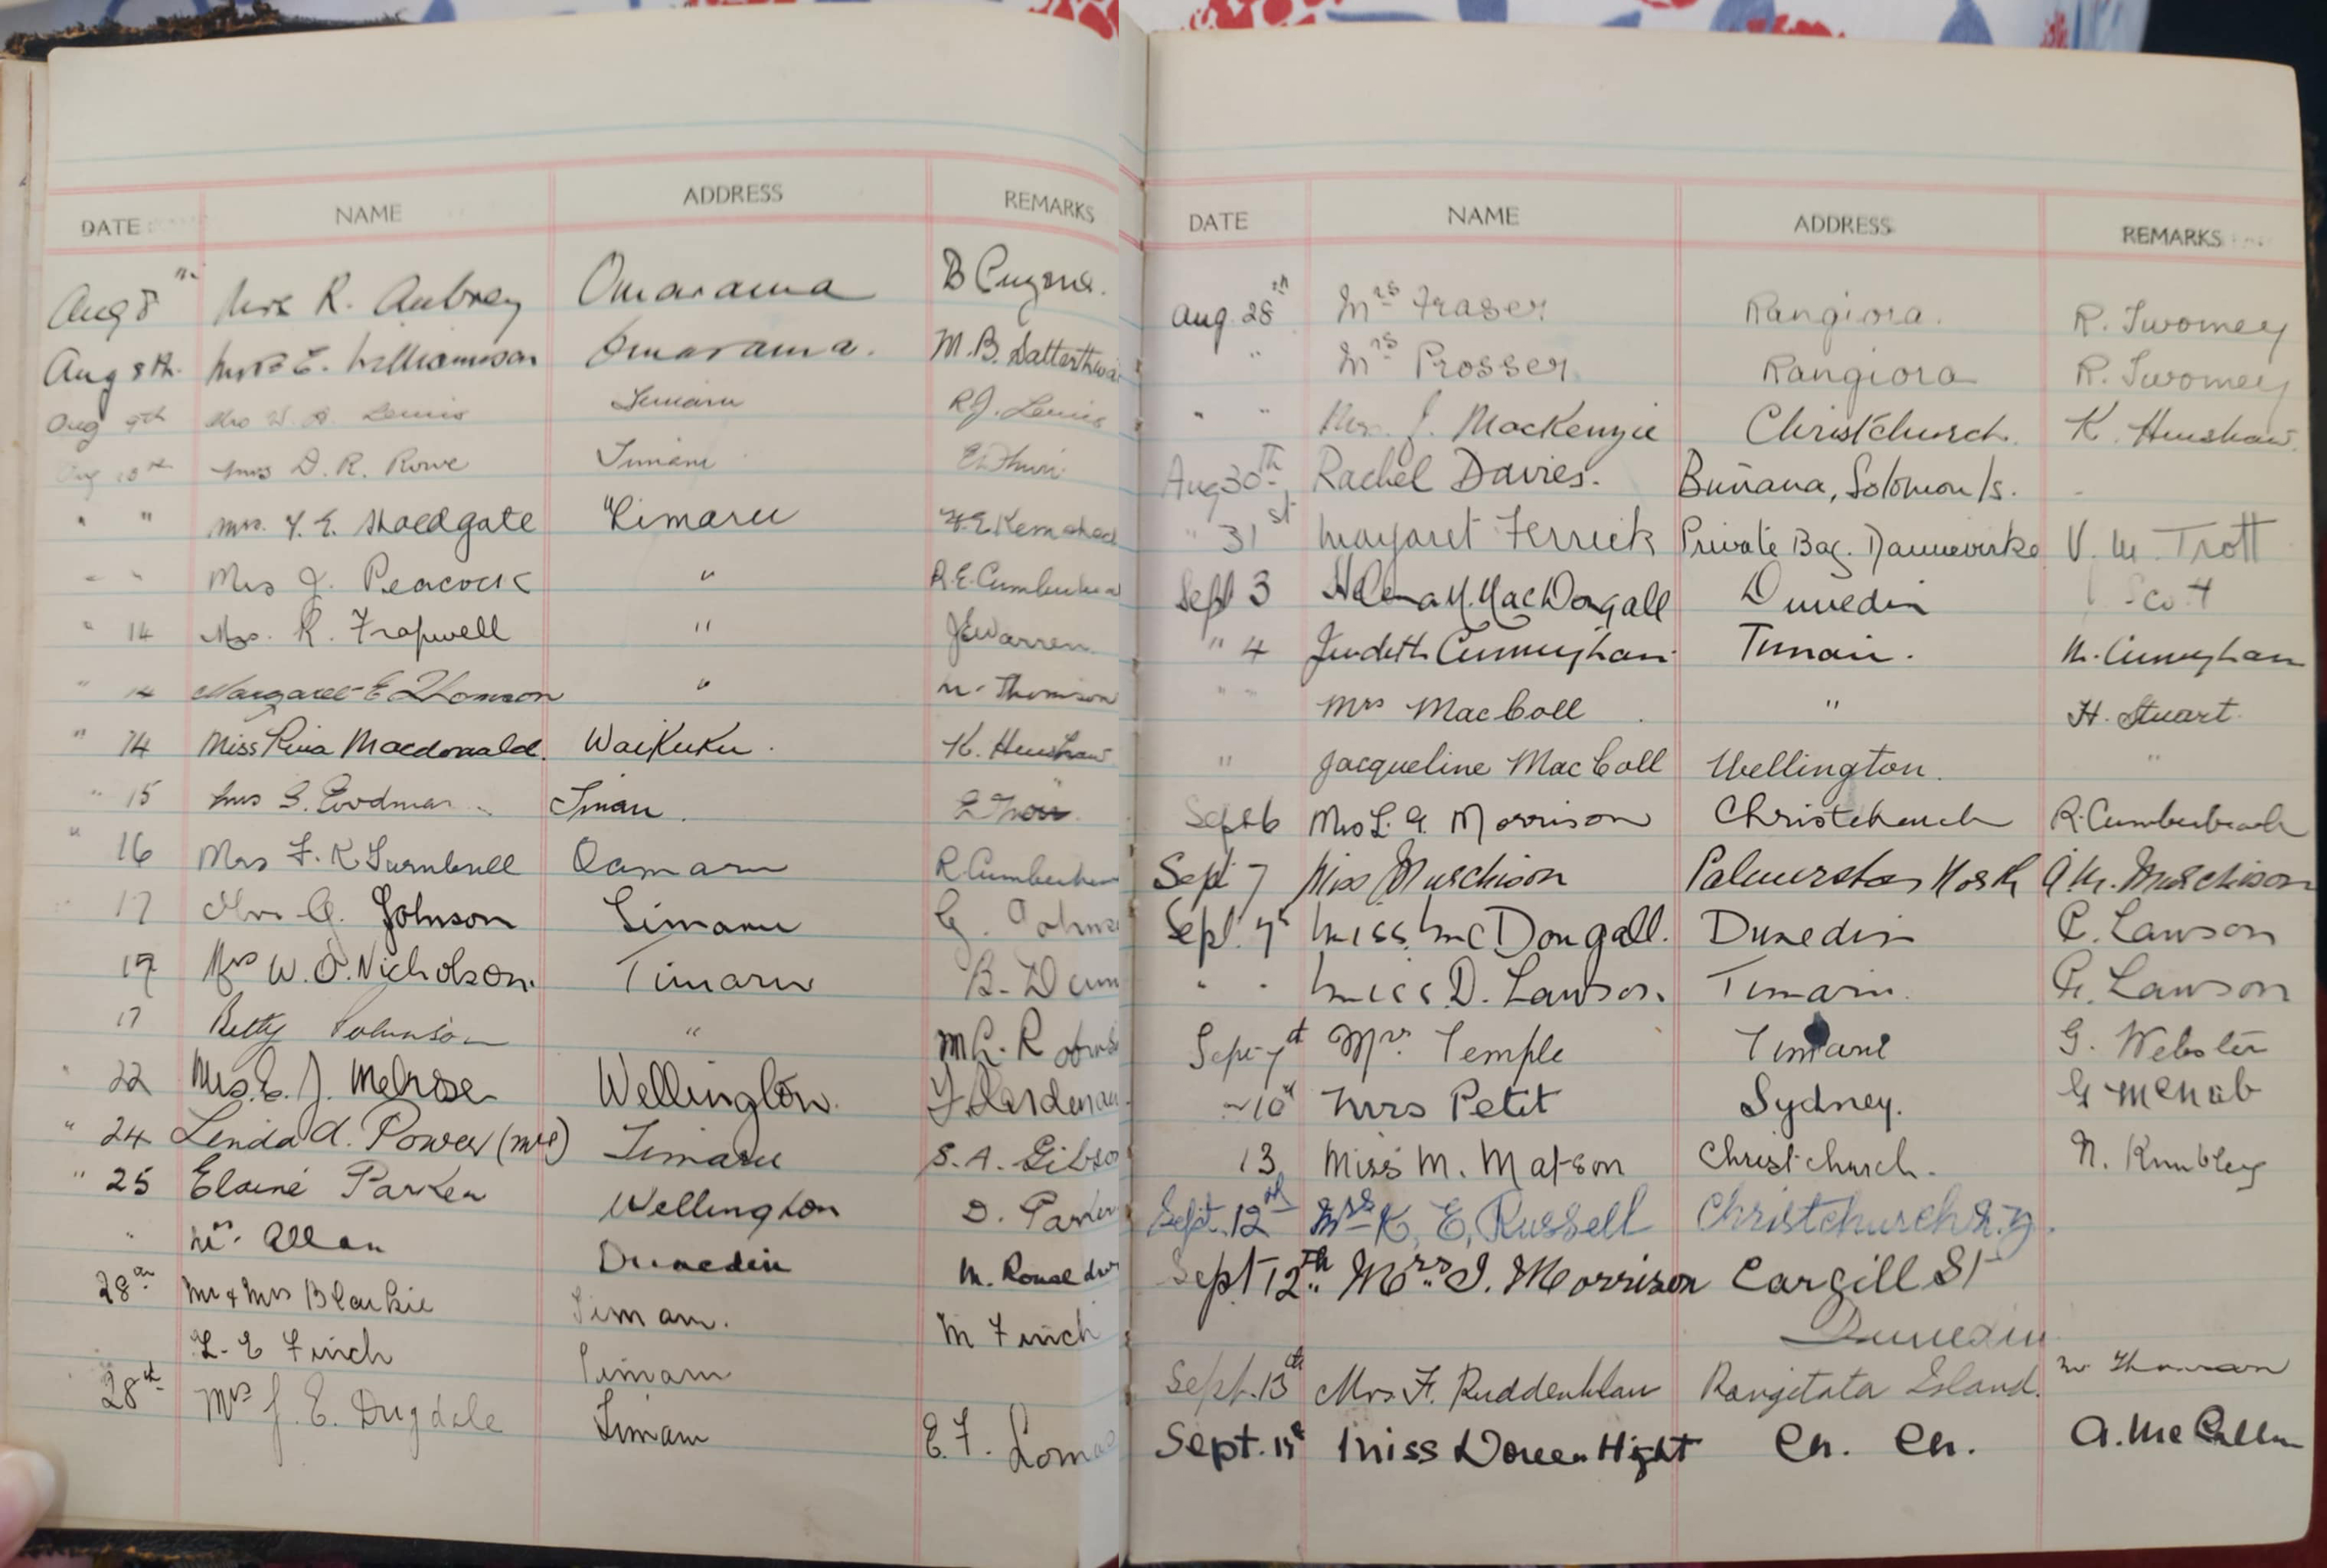 DATE NAME ADDRESS REMARKS
Aug 8th Mrs R. Aubrey Omarama B
Aug 8th. Mrs E. Williamson Omarama. M.B. Satterthwai
Aug 9th Mrs W. A. Lewis Timaru R.J. Lewis
Aug 10th Mrs D. R. Rowe Timaru
" " Mrs. Y. E. Timaru
- " Mrs J. Peacock " R.E. Cumberbea
" 14 Mrs. R. Frapwell " J E Warren.
" 14 Margaret E Thomson " M. Thomson
" 14 Miss Rina Macdonald. Waikuku. K. Henshaw
" 15 Mrs G. Goodman Timaru.
" 16 Mrs F. K Turnbull Oamaru R. Cumberbea
17 Mrs G. Johnson Timaru G. Johnso
17 Mrs W. O. Nicholson. Timaru B. Dunn
17 Betty Johnson "
" 22 Mrs. E. J. Melrose Wellington. Y. Hardeman
" 24 Linda A. Power (Mrs) Timaru S. A. Gibso
" 25 Elaine Parker Wellington D. Parker
" Mrs. Allan Dunedin M.
28th Mr & Mrs Blackie Timaru. M Finch
L. E Finch Timaru
28th Mrs J. E. Dugdale Timaru E. F. Loma
DATE NAME ADDRESS REMARKS
Aug. 28th Mrs Fraser Rangiora. R. Twomey
" Mrs Prosser Rangiora R. Twomey
" " Mrs. J. MacKenzie Christchurch. K. Henshaw.
Aug 30th Rachel Davies. Bunana, Solomon Is. -
" 31st Margaret Ferrick Private Bag. Dannevirke V. M. Trott
Sept 3 Helena M. MacDougall Dunedin Scott
" 4 Judith Cunningham. Timaru. M. Cunningham
" " Mrs MacColl " H. Stuart.
" Jacqueline MacColl Wellington. "
Sept 6 Mrs L. G. Morrison Christchurch R. Cumberbeach
Sept 7 Miss Murchison Palmerston North A. M. Murchison
Sept. 7th Miss. McDougall. Dunedin C. Lawson
" " Miss D. Lawson. Timaru. C. Lawson
Sept 7th Mrs. Temple Timaru G. Webster
" 10th Mrs Petit Sydney. G McNab
13 Miss M. Matson Christchurch. N. Rumbley
Sept. 12th Mrs K. E. Russell Christchurch N.Z.
Sept 12th Mrs. I. Morrison Cargill St
Dunedin
Sept. 13th Mrs. F. Ruddenklau Rangitata Island. M Thomson
Sept. 15th Miss Doreen Hight Ch. Ch. A. McCallum